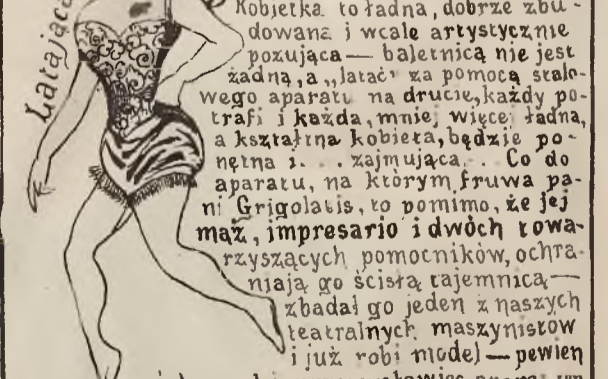 Latająca
Kobietka to ładna, dobrze zbu-
dowana i wcale artystycznie
pozująca — baletnicą nie jest
żadną, a „latać" za pomocą stalo-
wego aparatu na drucie, każdy po-
trafi i każda, mniej więcej ładna,
a kształtna kobieta, będzie po-
nętna i... zajmująca... Co do
aparatu, na którym fruwa pa-
ni Grigolatis, to pomimo, że jej
mąż, impresario i dwóch towa-
rzyszących pomocników, ochra-
niają go ścisłą tajemnicą —
zbadał go jeden z naszych
teatralnych maszynistów
i już robi model — pewien